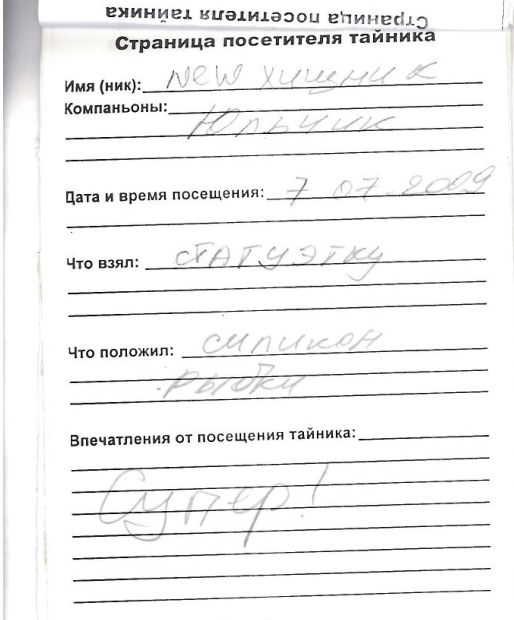 Страница посетителя тайника
Страница посетителя тайника
Имя (ник): New хищник
Компаньоны:
Юльчик
Дата и время посещения: 7 07.2009
Что взял: СТАТУЭТКУ
Что положил: силикон
рыбки
Впечатления от посещения тайника:
Супер!